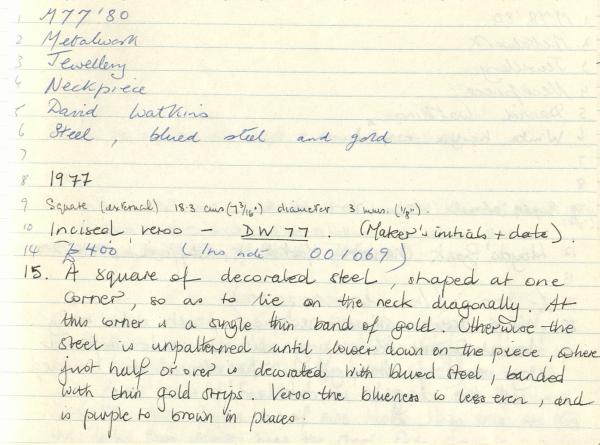 1 M77 '80
2 Metalwork
3 Jewellery
4 Neckpiece
5 David Watkins
6 Steel, blued steel and gold
7
8 1977
9 Square (external) 18.3 cms (7 3/16") diameter 3 mm. (1/8").
10 Incised, verso - DW 77. (Maker's initials + date).
14 £400 (Ins note 001069)
15. A square of decorated steel, shaped at one
corner, so as to lie on the neck diagonally. At
this corner is a single thin band of gold. Otherwise the
steel is unpatterned until lower down on the piece, where
just half or over is decorated with blued steel, banded
with thin gold strips. Verso the blueness is less even, and
is purple to brown in places.